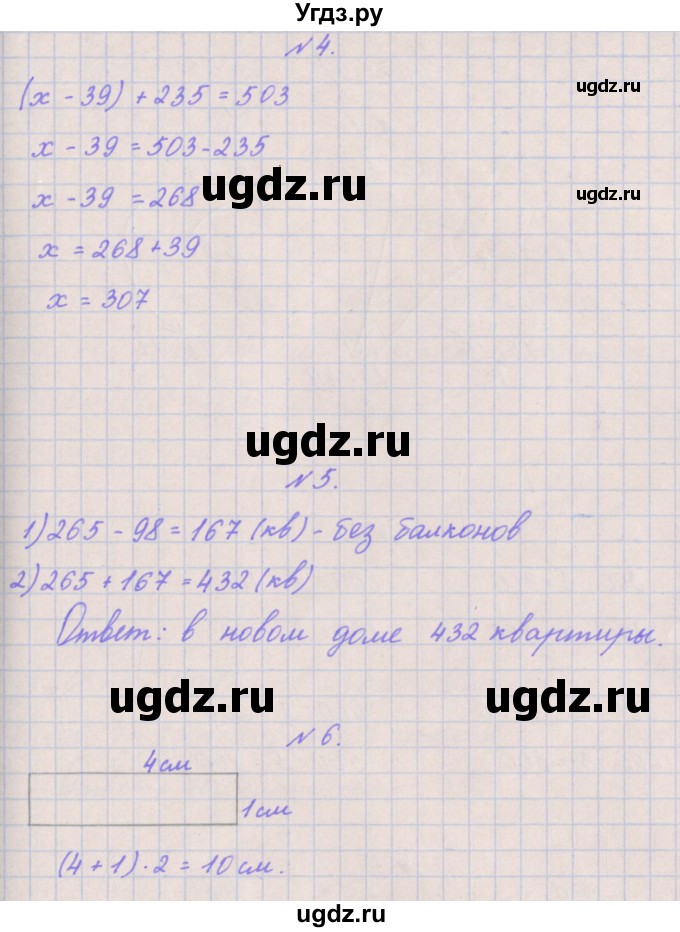 Угдз.ру
№ 4.
(x - 39) + 235 = 503
ugdz.ru
x - 39 = 503 - 235
ugdz.ru
x - 39 = 268
ugdz.ru
x = 268 + 39
x = 307
ugdz.ru
№ 5.
1) 265 - 98 = 167 (кв) - без балконов
2) 265 + 167 = 432 (кв)
Ответ: в новом доме 432 квартиры.
ugdz.ru
ugdz.ru
№ 6.
4 см
1 см
(4 + 1) · 2 = 10 см.
ugdz.ru